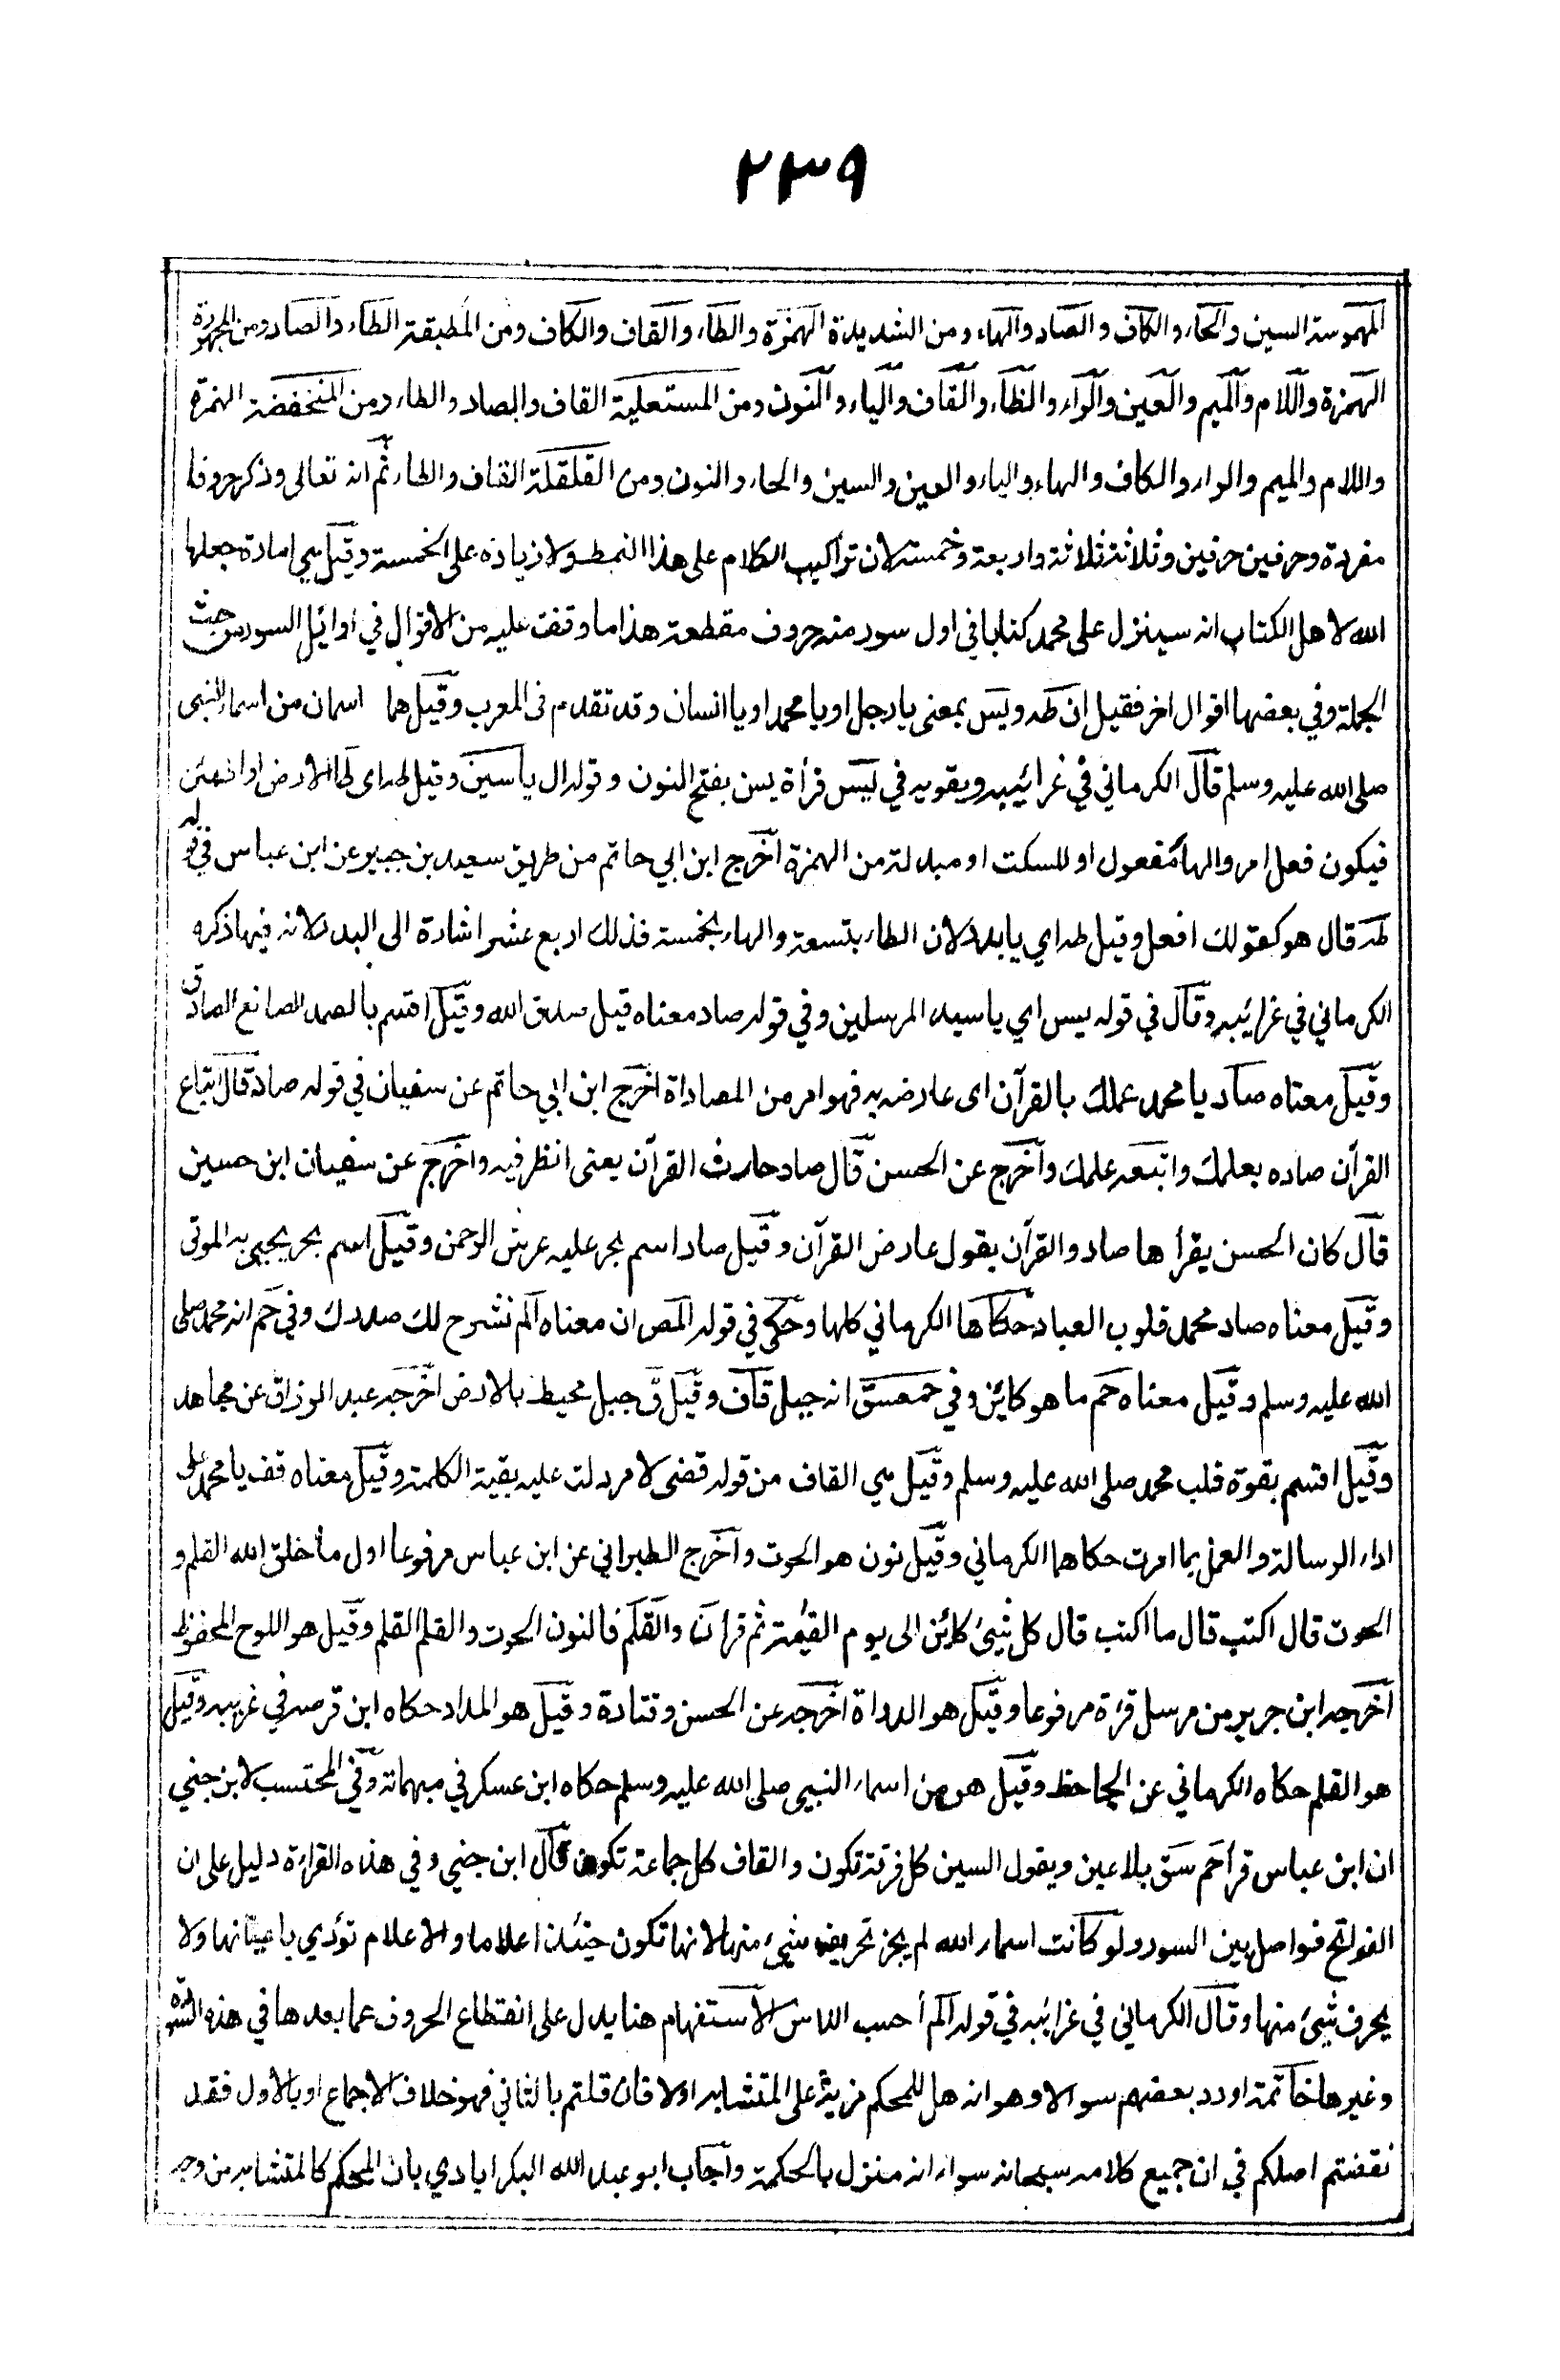 ٢٣٩
المهموسة السين والحاء والكاف والصاد والهاء ومن الشديدة الهمزة والطاء والقاف والكاف ومن المطبقة الطاء والصاد ومن المجهورة
الهمزة واللام والميم والعين والراء والظاء والقاف والياء والنون ومن المستعلية القاف والصاد والطاء ومن المنخفضة الهمزة
واللام والميم والراء والكاف والهاء والياء والعين والسين والحاء والنون ومن القلقلة القاف والطاء ثم انه تعالى وذكر حروفا
مفردة وحرفين حرفين وثلاثة ثلاثة واربعة وخمسة لان تراكيب الكلام على هذا النمط ولا زيادة على الخمسة وقيل هي امارة جعلها
الله لاهل الكتاب انه سينزل على محمد كتابا في اول سور منه حروف مقطعة هذا ما وقفت عليه من الاقوال في اوائل السور من حيث
الجملة وفي بعضها اقوال اخر فقيل ان طه ويس بمعنى يا رجل او يا محمد او يا انسان وقد تقدم فى المعرب وقيل هما اسمان من اسماء النبى
صلى الله عليه وسلم قال الكرماني في غرائيبه ويقويه في يس قرأة يسن بفتح النون وقوله ال ياسين وقيل طه اى طا الارض او اطمئن
فيكون فعل امر والهأ مفعول او للسكت او مبدلة من الهمزة اخرج ابن ابي حاتم من طريق سعيد بن جبير عن ابن عباس في قوله
طه قال هو كقولك افعل وقيل طه اي يا بدر لان الطاء بتسعة والهاء بخمسة فذلك اربع عشر اشارة الى البدر لانه فيها ذكره
الكرماني في غرائبه وقال في قوله يس اي يا سيد المرسلين وفي قوله صاد معناه قيل صدق الله وقيل اقسم بالصمد الصانع الصادق
وقيل معناه صاد يا محمد عملك بالقرآن اى عارضه به فهو امر من المصاداة اخرج ابن ابي حاتم عن سفيان في قوله صاد قال اتباع
القرآن صاده بعلمك واتبعه علمك وأخرج عن الحسن قال صاد حارث القرآن يعنى انظر فيه واخرج عن سفيان ابن حسين
قال كان الحسن يقرأ ها صاد والقرآن يقول عارض القرآن وقيل صاد اسم بحر عليه عرش الرحمن وقيل اسم بحر يحيى به الموتى
وقيل معناه صاد محمد قلوب العباد حكاها الكرماني كلها وحكى في قوله المص ان معناه الم نشرح لك صدرك وفي حم انه محمد صلى
الله عليه وسلم وقيل معناه حم ما هو كائن وفي حمعسق انه جبل قاف وقيل ق جبل محيط بالارض اخرجه عبد الرزاق عن مجاهد
وقيل اقسم بقوة قلب محمد صلى الله عليه وسلم وقيل هي القاف من قوله قضى لامر دلت عليه بقية الكلمة وقيل معناه قف يا محمد على
اداء الرسالة والعمل بما امرت حكاهما الكرماني وقيل نون هو الحوت وأخرج الطبراني عن ابن عباس مرفوعا اول ما خلق الله القلم و
الحوت قال اكتب قال ما اكتب قال كل شيئ كائن الى يوم القيمة ثم قرأ ن والقلم فالنون الحوت والقلم القلم وقيل هو اللوح المحفوظ
اخرجه ابن جرير من مرسل قرة مرفوعا وقيل هو الدواة اخرجه عن الحسن وقتادة وقيل هو المداد حكاه ابن قرصه في غريبه وقيل
هو القلم حكاه الكرماني عن الجاحظ وقيل هو من اسماء النبي صلى الله عليه وسلم حكاه ابن عسكر في مبهماته وفي المحتسب لابن جني
ان ابن عباس قرأ حم سق بلا عين ويقول السين كل فرقة تكون والقاف كل جماعة تكون قال ابن جني وفي هذه القراءة دليل على ان
الفواتح فواصل بين السور ولو كانت اسماء الله لم يجز تحريف شيء منها لانها تكون حينئذ اعلاما والاعلام تؤدي باعيانها ولا
يحرف شيئ منها وقال الكرماني في غرائبه في قوله الم أحسب الناس الاستفهام هنا يدل على انقطاع الحروف عما بعدها في هذه السورة
وغيرها خاتمة اورد بعضهم سوالا وهو انه هل للمحكم مزية على المتشابه اولا فان قلتم بالثاني فهو خلاف الاجماع او بالاول فقد
نقضتم اصلكم في ان جميع كلامه سبحانه سواء انه منزل بالحكمة وأجاب ابو عبد الله البكرابادي بان المحكم كالمتشابه من وجه